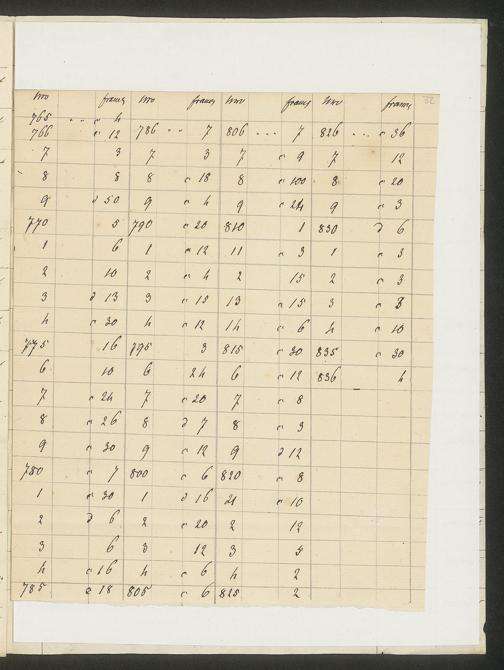 Nro francs Nro francs Nro francs Nro francs 32
765 " " " 4
766 " 12 786 " " 7 806 " " " 7 826 " " " " 36
7 3 7 3 7 " 9 7 12
8 8 8 " 18 8 " 100 8 " 20
9 d 50 9 " 4 9 " 24 9 " 3
770 8 790 " 20 810 1 830 d 6
1 6 1 " 12 11 " 3 1 " 3
2 10 2 " 4 2 15 2 " 3
3 d 13 3 " 15 13 " 15 3 " 3
4 " 30 4 " 12 14 " 6 4 " 10
775 16 795 3 815 " 30 835 " 30
6 10 6 24 6 " 12 836 4
7 " 24 7 " 20 7 " 8
8 " 26 8 d 7 8 " 3
9 " 30 9 " 12 9 d 12
780 " 7 800 " 6 820 " 8
1 " 30 1 d 16 21 " 10
2 d 6 2 " 20 2 12
3 6 3 12 3
4 " 16 4 " 6 4 2
785 " 18 805 " 6 825 2